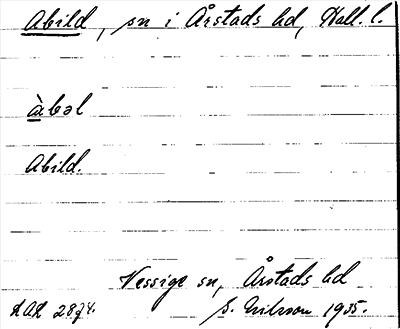 Abild, sn i Årstads hd, Hall. l.
àbəl
Abild.
Vessige sn, Årstads hd
AAR 2874. S. Nilsson 1935.